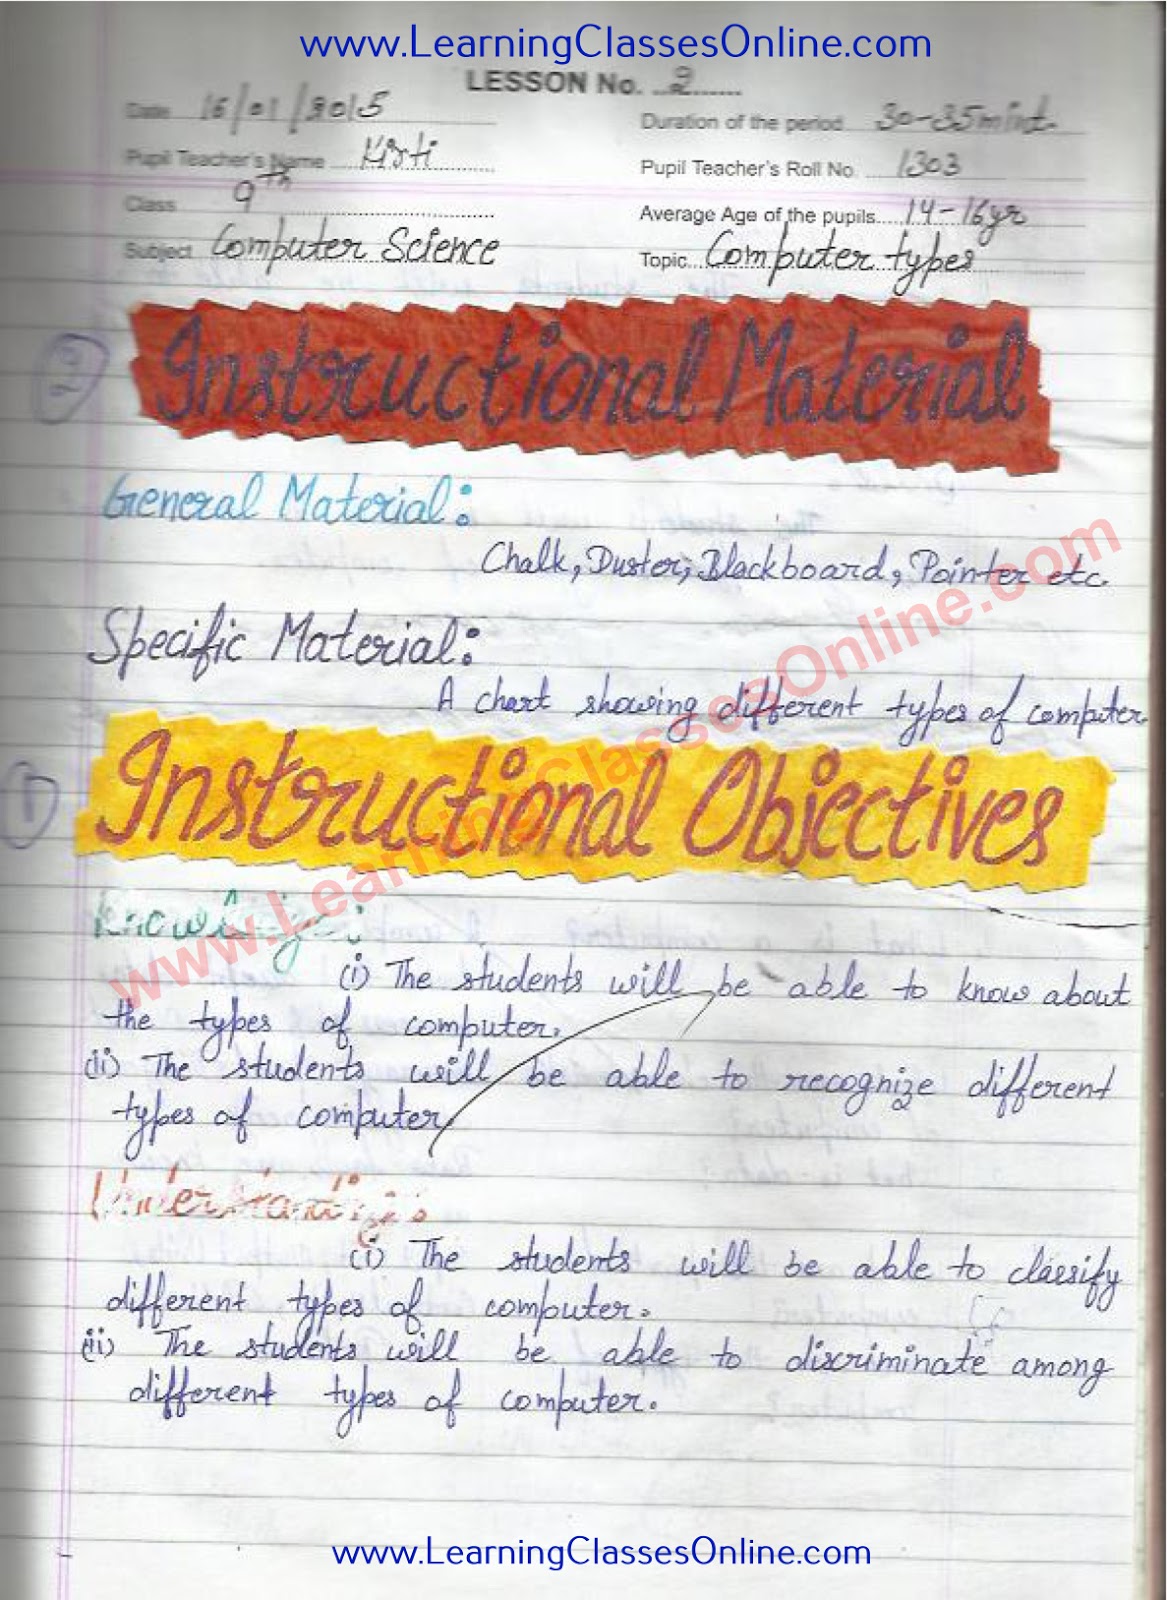 www.LearningClassesOnline.com
LESSON No. 2
Date 16/01/2015 Duration of the period 30-35 mint.
Pupil Teacher's Name Kirti Pupil Teacher's Roll No. 1303
Class 9th Average Age of the pupils 14-16yr
Subject Computer Science Topic Computer types
2
Instructional Material
General Material:
Chalk, Duster, Blackboard, Pointer etc.
Specific Material:
A chart showing different types of computer
1
Instructional Objectives
Knowledge:
(i) The students will be able to know about
the types of computer.
(ii) The students will be able to recognize different
types of computer
Understanding:
(i) The students will be able to classify
different types of computer.
(ii) The students will be able to discriminate among
different types of computer.
www.LearningClassesOnline.com
www.LearningClassesOnline.com